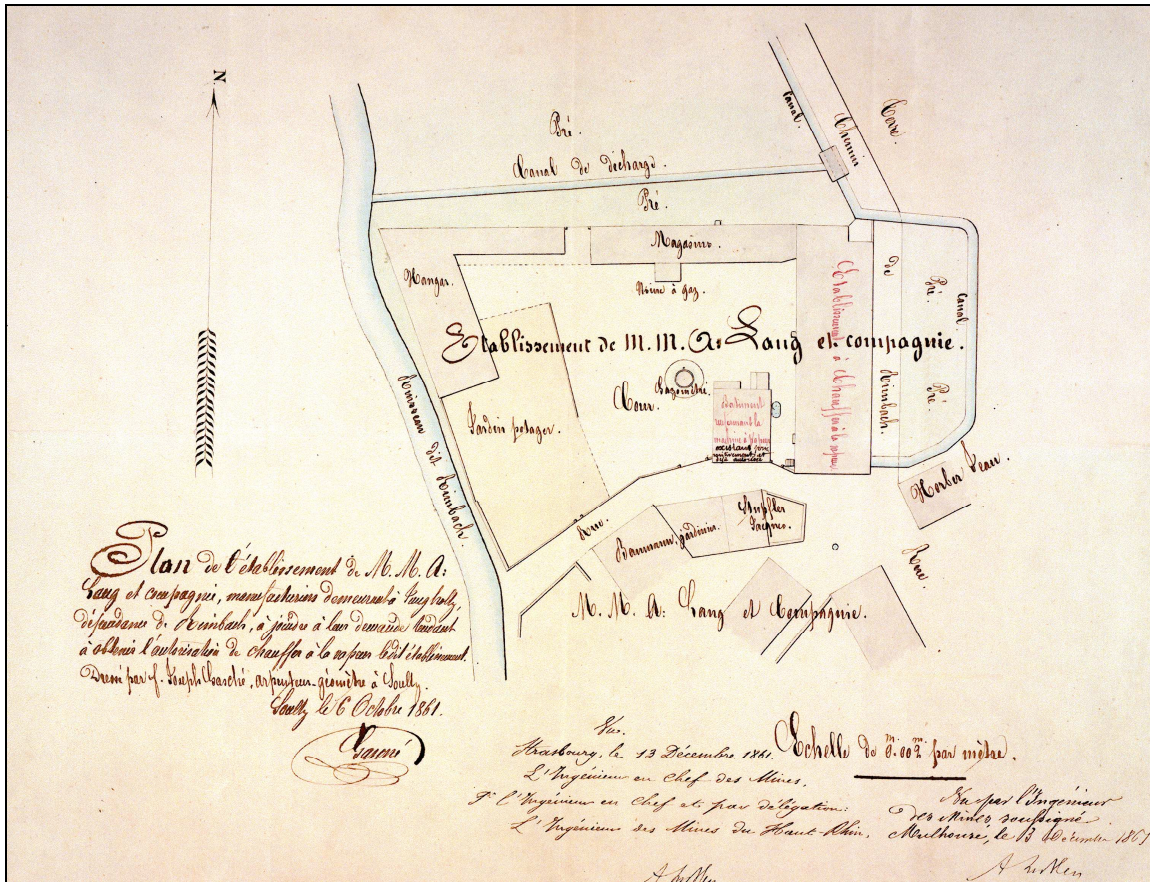 N
Pré.
Canal de décharge.
Pré.
Canal.
Chemin
Terre.
Hangar.
Magasins.
Usine à gaz.
Etablissement à chauffer à la vapeur
Canal
de
Rimbach.
Pré.
Pré.
Canal.
Etablissement de M.M. A: Lang et compagnie.
Gazomètre.
Cour.
Jardin potager.
Bâtiment
renfermant la
machine à vapeur
existant
déjà autorisée
Ruisseau dit Rimbach.
Rue.
Baumann
jardinier.
Jacques.
Herber Jean.
Rue
M. M. A: Lang et Compagnie.
Plan de l'établissement de M. M. A:
Lang et compagnie, manufacturiers demeurant à
dépendance de Rimbach, à joindre à leur demande tendant
à obtenir l'autorisation de chauffer à la vapeur ledit établissement.
Dressé par f. Joseph Gasché, arpenteur-géomètre à Soultz.
Soultz le 6 Octobre 1861.
Gasché
Vu.
Strasbourg, le 13 Décembre 1861.
L'Ingénieur en Chef des Mines,
Pr l'Ingénieur en Chef et par délégation:
L'Ingénieur des Mines du Haut-Rhin,
Echelle de 0.m002m par mètre.
Vu par l'Ingénieur
des Mines soussigné
Mulhouse, le 13 Décembre 1861